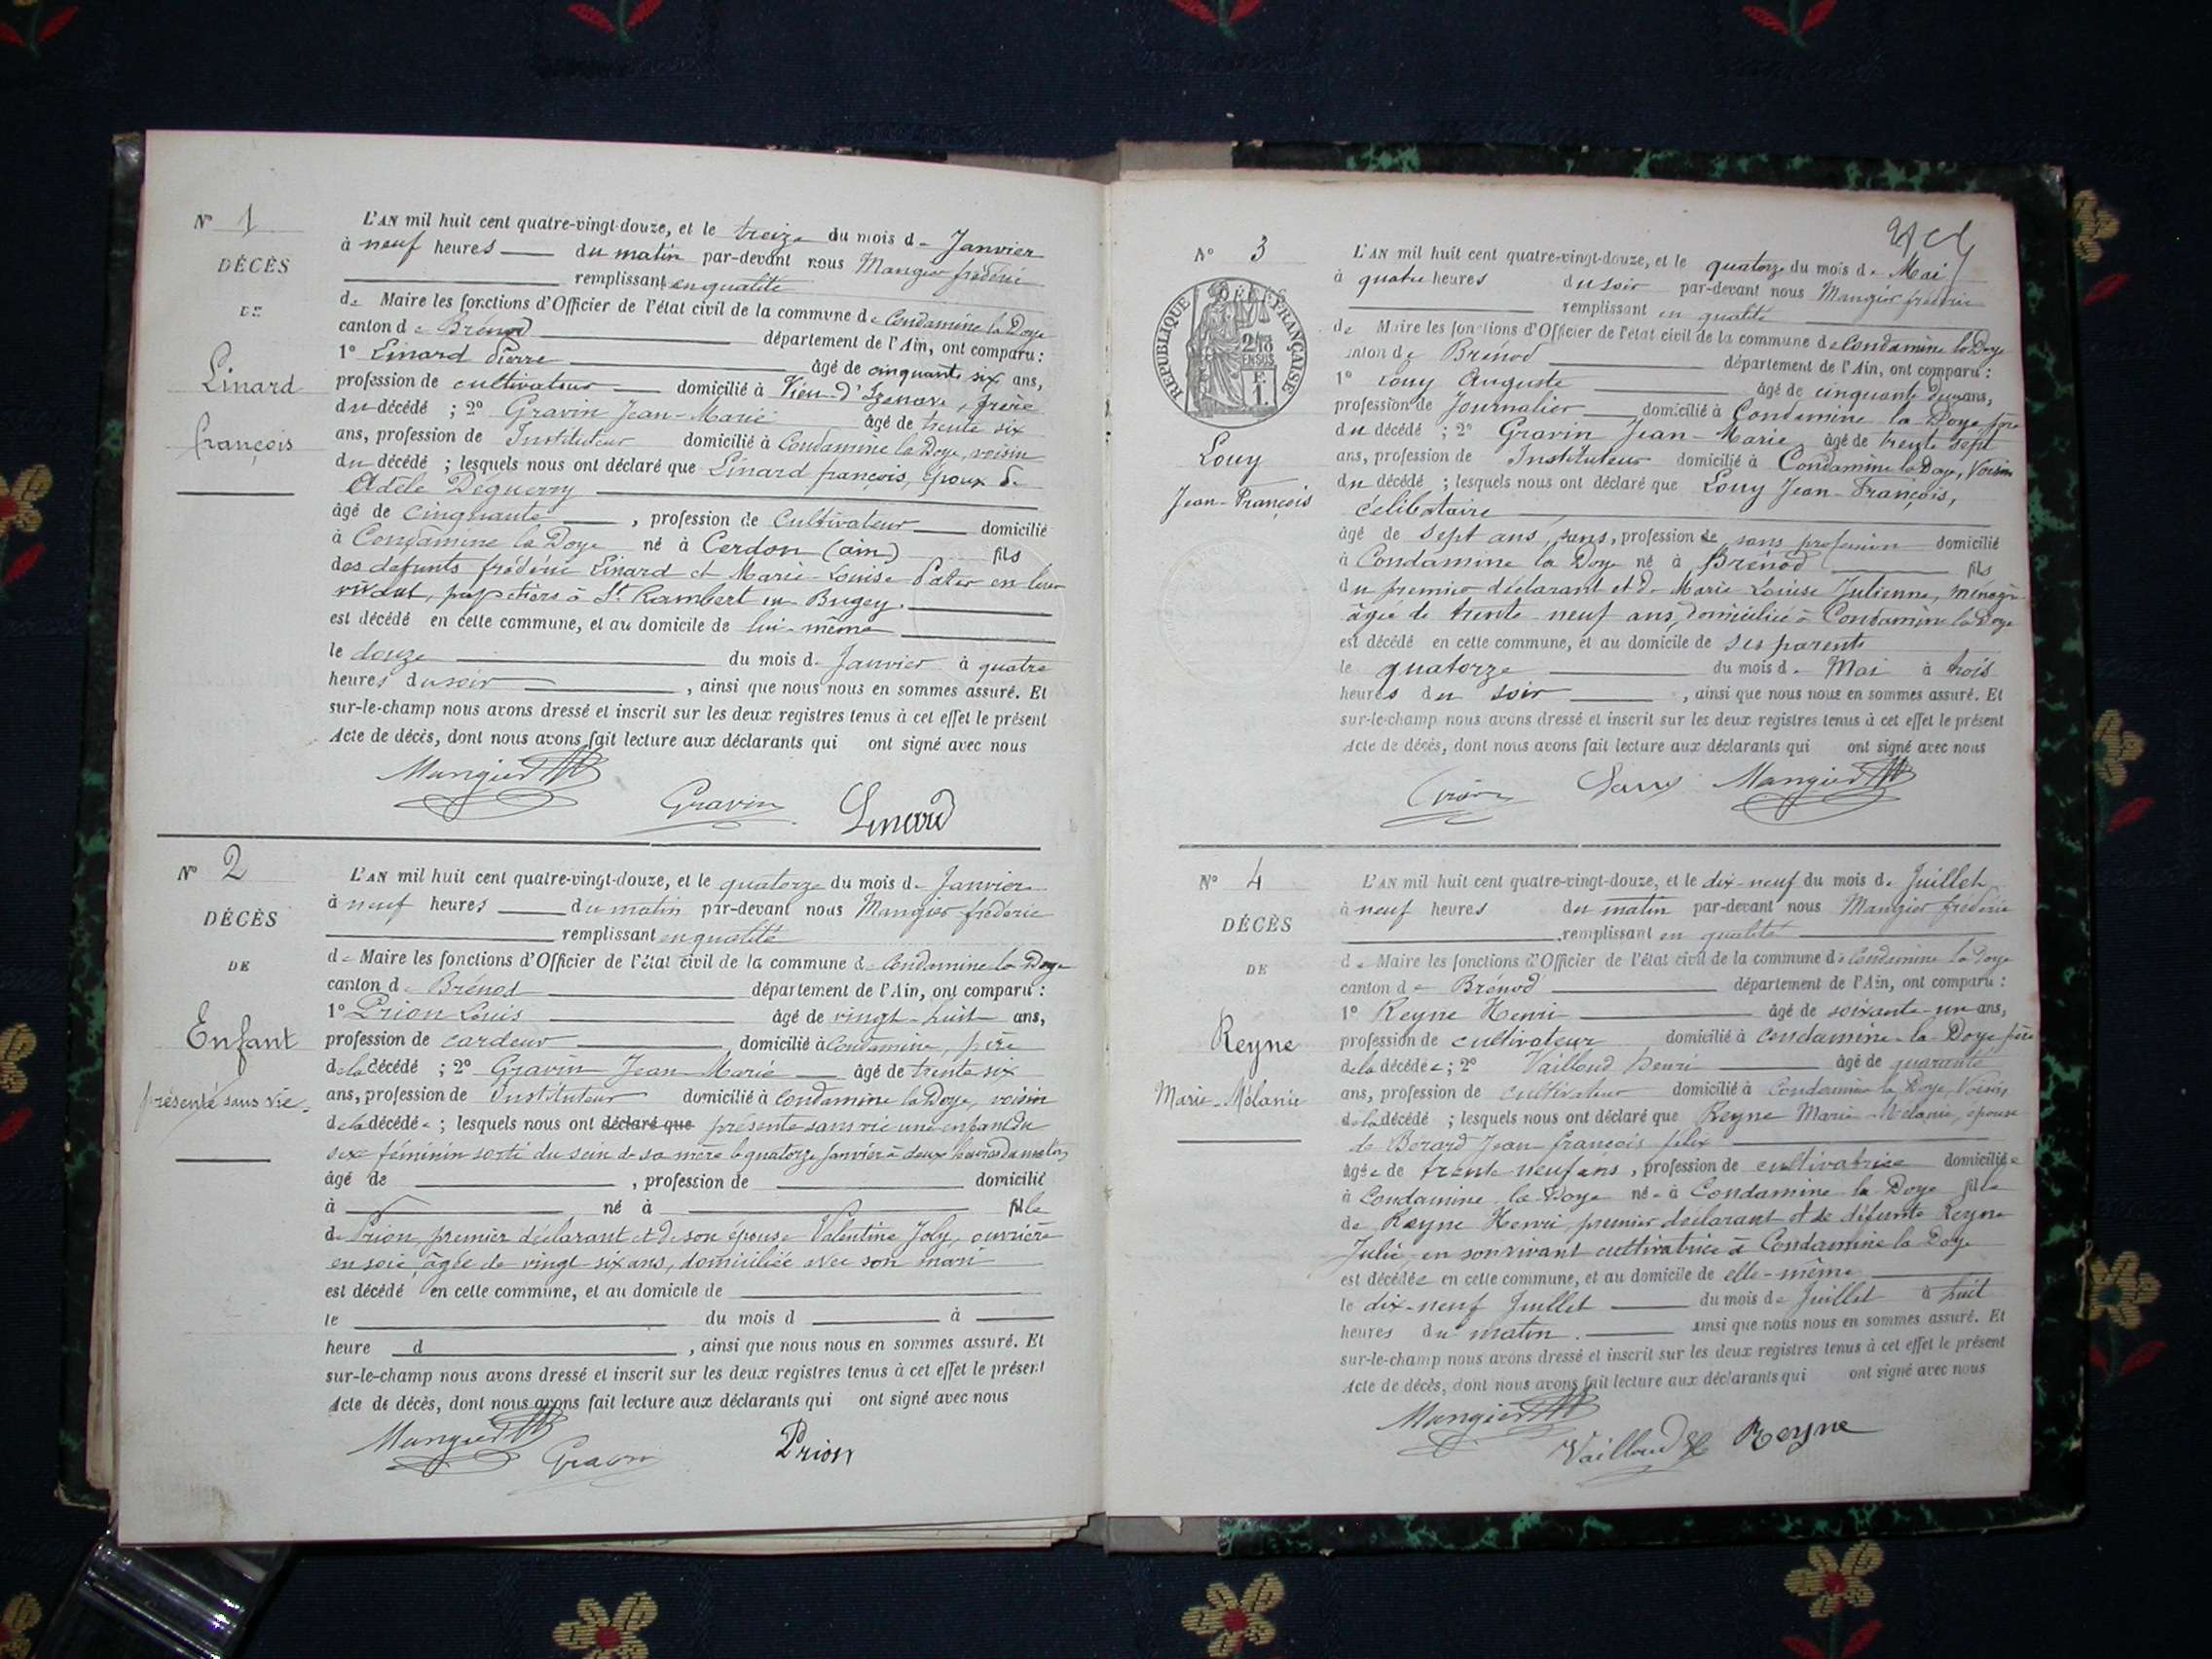 N° 1
DÉCÈS
DE
Linard
françois
L'AN mil huit cent quatre-vingt-douze, et le treize du mois de Janvier
à neuf heures du matin par-devant nous Mangier frédéric
remplissant en qualité
de Maire les fonctions d'Officier de l'état civil de la commune de Condamine la Doye
canton de Brénod département de l'Ain, ont comparu :
1° Linard Pierre âgé de cinquante six ans,
profession de cultivateur domicilié à Vieu-d'Izenave, frère
du décédé ; 2° Gravin Jean-Marie âgé de trente six
ans, profession de Instituteur domicilié à Condamine la Doye, voisin
du décédé ; lesquels nous ont déclaré que Linard françois, époux de
Adèle Deguerry
âgé de cinquante , profession de Cultivateur domicilié
à Condamine la Doye né à Cerdon (ain) fils
des défunts frédéric Linard et Marie-Louise en leur
vivant, à St Rambert en Bugey.
est décédé en cette commune, et au domicile de lui-même
le douze du mois de Janvier à quatre
heures du soir , ainsi que nous nous en sommes assuré. Et
sur-le-champ nous avons dressé et inscrit sur les deux registres tenus à cet effet le présent
Acte de décès, dont nous avons fait lecture aux déclarants qui ont signé avec nous
Mangier Gravin Linard
N° 2
DÉCÈS
DE
Enfant
présenté sans vie.
L'AN mil huit cent quatre-vingt-douze, et le quatorze du mois de Janvier
à neuf heures du matin par-devant nous Mangier frédéric
remplissant en qualité
de Maire les fonctions d'Officier de l'état civil de la commune de Condamine la Doye
canton de Brénod département de l'Ain, ont comparu :
1° Prion Louis âgé de vingt-huit ans,
profession de cardeur domicilié à Condamine, père
de la décédé ; 2° Gravin Jean-Marie âgé de trente six
ans, profession de Instituteur domicilié à Condamine la Doye, voisin
de la décédée ; lesquels nous ont déclaré que présenté sans vie une enfant du
sexe féminin sorti du sein de sa mère le quatorze Janvier à deux heures du matin
âgé de , profession de domicilié
à né à fille
de Prion, premier déclarant et de son épouse Valentine Joly, ouvrière
en soie, âgée de vingt-six ans, domiciliée avec son mari
est décédé en cette commune, et au domicile de
le du mois d à
heure d , ainsi que nous nous en sommes assuré. Et
sur-le-champ nous avons dressé et inscrit sur les deux registres tenus à cet effet le présent
Acte de décès, dont nous avons fait lecture aux déclarants qui ont signé avec nous
Mangier Gravin Prion
N° 3
RÉPUBLIQUE FRANÇAISE
2/10 EN SUS
F. 1.
Louy
Jean-François
L'AN mil huit cent quatre-vingt-douze, et le quatorze du mois de Mai
à quatre heures du soir par-devant nous Mangier frédéric
remplissant en qualité
de Maire les fonctions d'Officier de l'état civil de la commune de Condamine la Doye
canton de Brénod département de l'Ain, ont comparu :
1° Louy Auguste âgé de cinquante deux ans,
profession de Journalier domicilié à Condamine la Doye père
du décédé ; 2° Gravin Jean-Marie âgé de trente sept
ans, profession de Instituteur domicilié à Condamine la Doye, Voisin
du décédé ; lesquels nous ont déclaré que Louy Jean-François,
célibataire
âgé de sept ans, sans, profession de sans profession domicilié
à Condamine la Doye né à Brénod fils
du premier déclarant et de Marie Louise Julienne, ménagère
âgée de trente-neuf ans, domiciliée à Condamine la Doye
est décédé en cette commune, et au domicile de ses parents
le quatorze du mois de Mai à trois
heures du soir , ainsi que nous nous en sommes assuré. Et
sur-le-champ nous avons dressé et inscrit sur les deux registres tenus à cet effet le présent
Acte de décès, dont nous avons fait lecture aux déclarants qui ont signé avec nous
Louy Mangier
N° 4
DÉCÈS
DE
Reyne
Marie-Mélanie
L'AN mil huit cent quatre-vingt-douze, et le dix-neuf du mois de Juillet
à neuf heures du matin par-devant nous Mangier frédéric
remplissant en qualité
de Maire les fonctions d'Officier de l'état civil de la commune de Condamine la Doye
canton de Brénod département de l'Ain, ont comparu :
1° Reyne Henri âgé de soixante-un ans,
profession de cultivateur domicilié à Condamine-la-Doye père
de la décédée ; 2° Vailloud Henri âgé de quarante
ans, profession de cultivateur domicilié à Condamine la Doye, Voisin
de la décédé ; lesquels nous ont déclaré que Reyne Marie-Mélanie, épouse
de Berard Jean françois félix
âgée de trente neuf ans, profession de cultivatrice domiciliée
à Condamine la Doye née à Condamine la Doye fille
de Reyne Henri, premier déclarant et de défunte Reyne
Julie, en son vivant cultivatrice à Condamine la Doye
est décédée en cette commune, et au domicile de elle-même
le dix-neuf Juillet du mois de Juillet à huit
heures du matin. ainsi que nous nous en sommes assuré. Et
sur-le-champ nous avons dressé et inscrit sur les deux registres tenus à cet effet le présent
Acte de décès, dont nous avons fait lecture aux déclarants qui ont signé avec nous
Mangier Vailloud Reyne